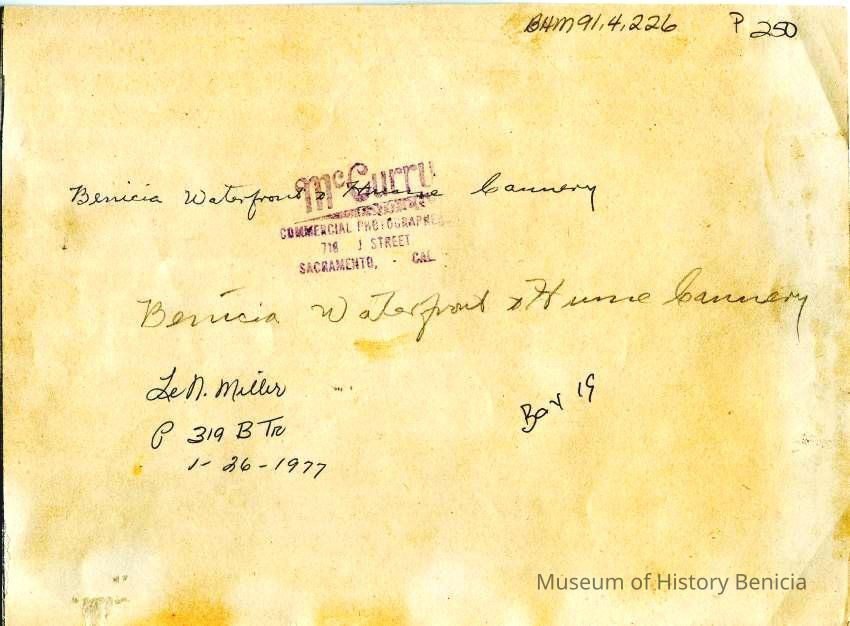 BHM91.4.226 P 250
Benicia Waterfront & Hume Cannery
McCurry
COMMERCIAL PHOTOGRAPHER
718 J STREET
SACRAMENTO, CAL.
Benicia Waterfront & Hume Cannery
Le N. Miller
P 319 B Tr
1-26-1977
Box 19
Museum of History Benicia